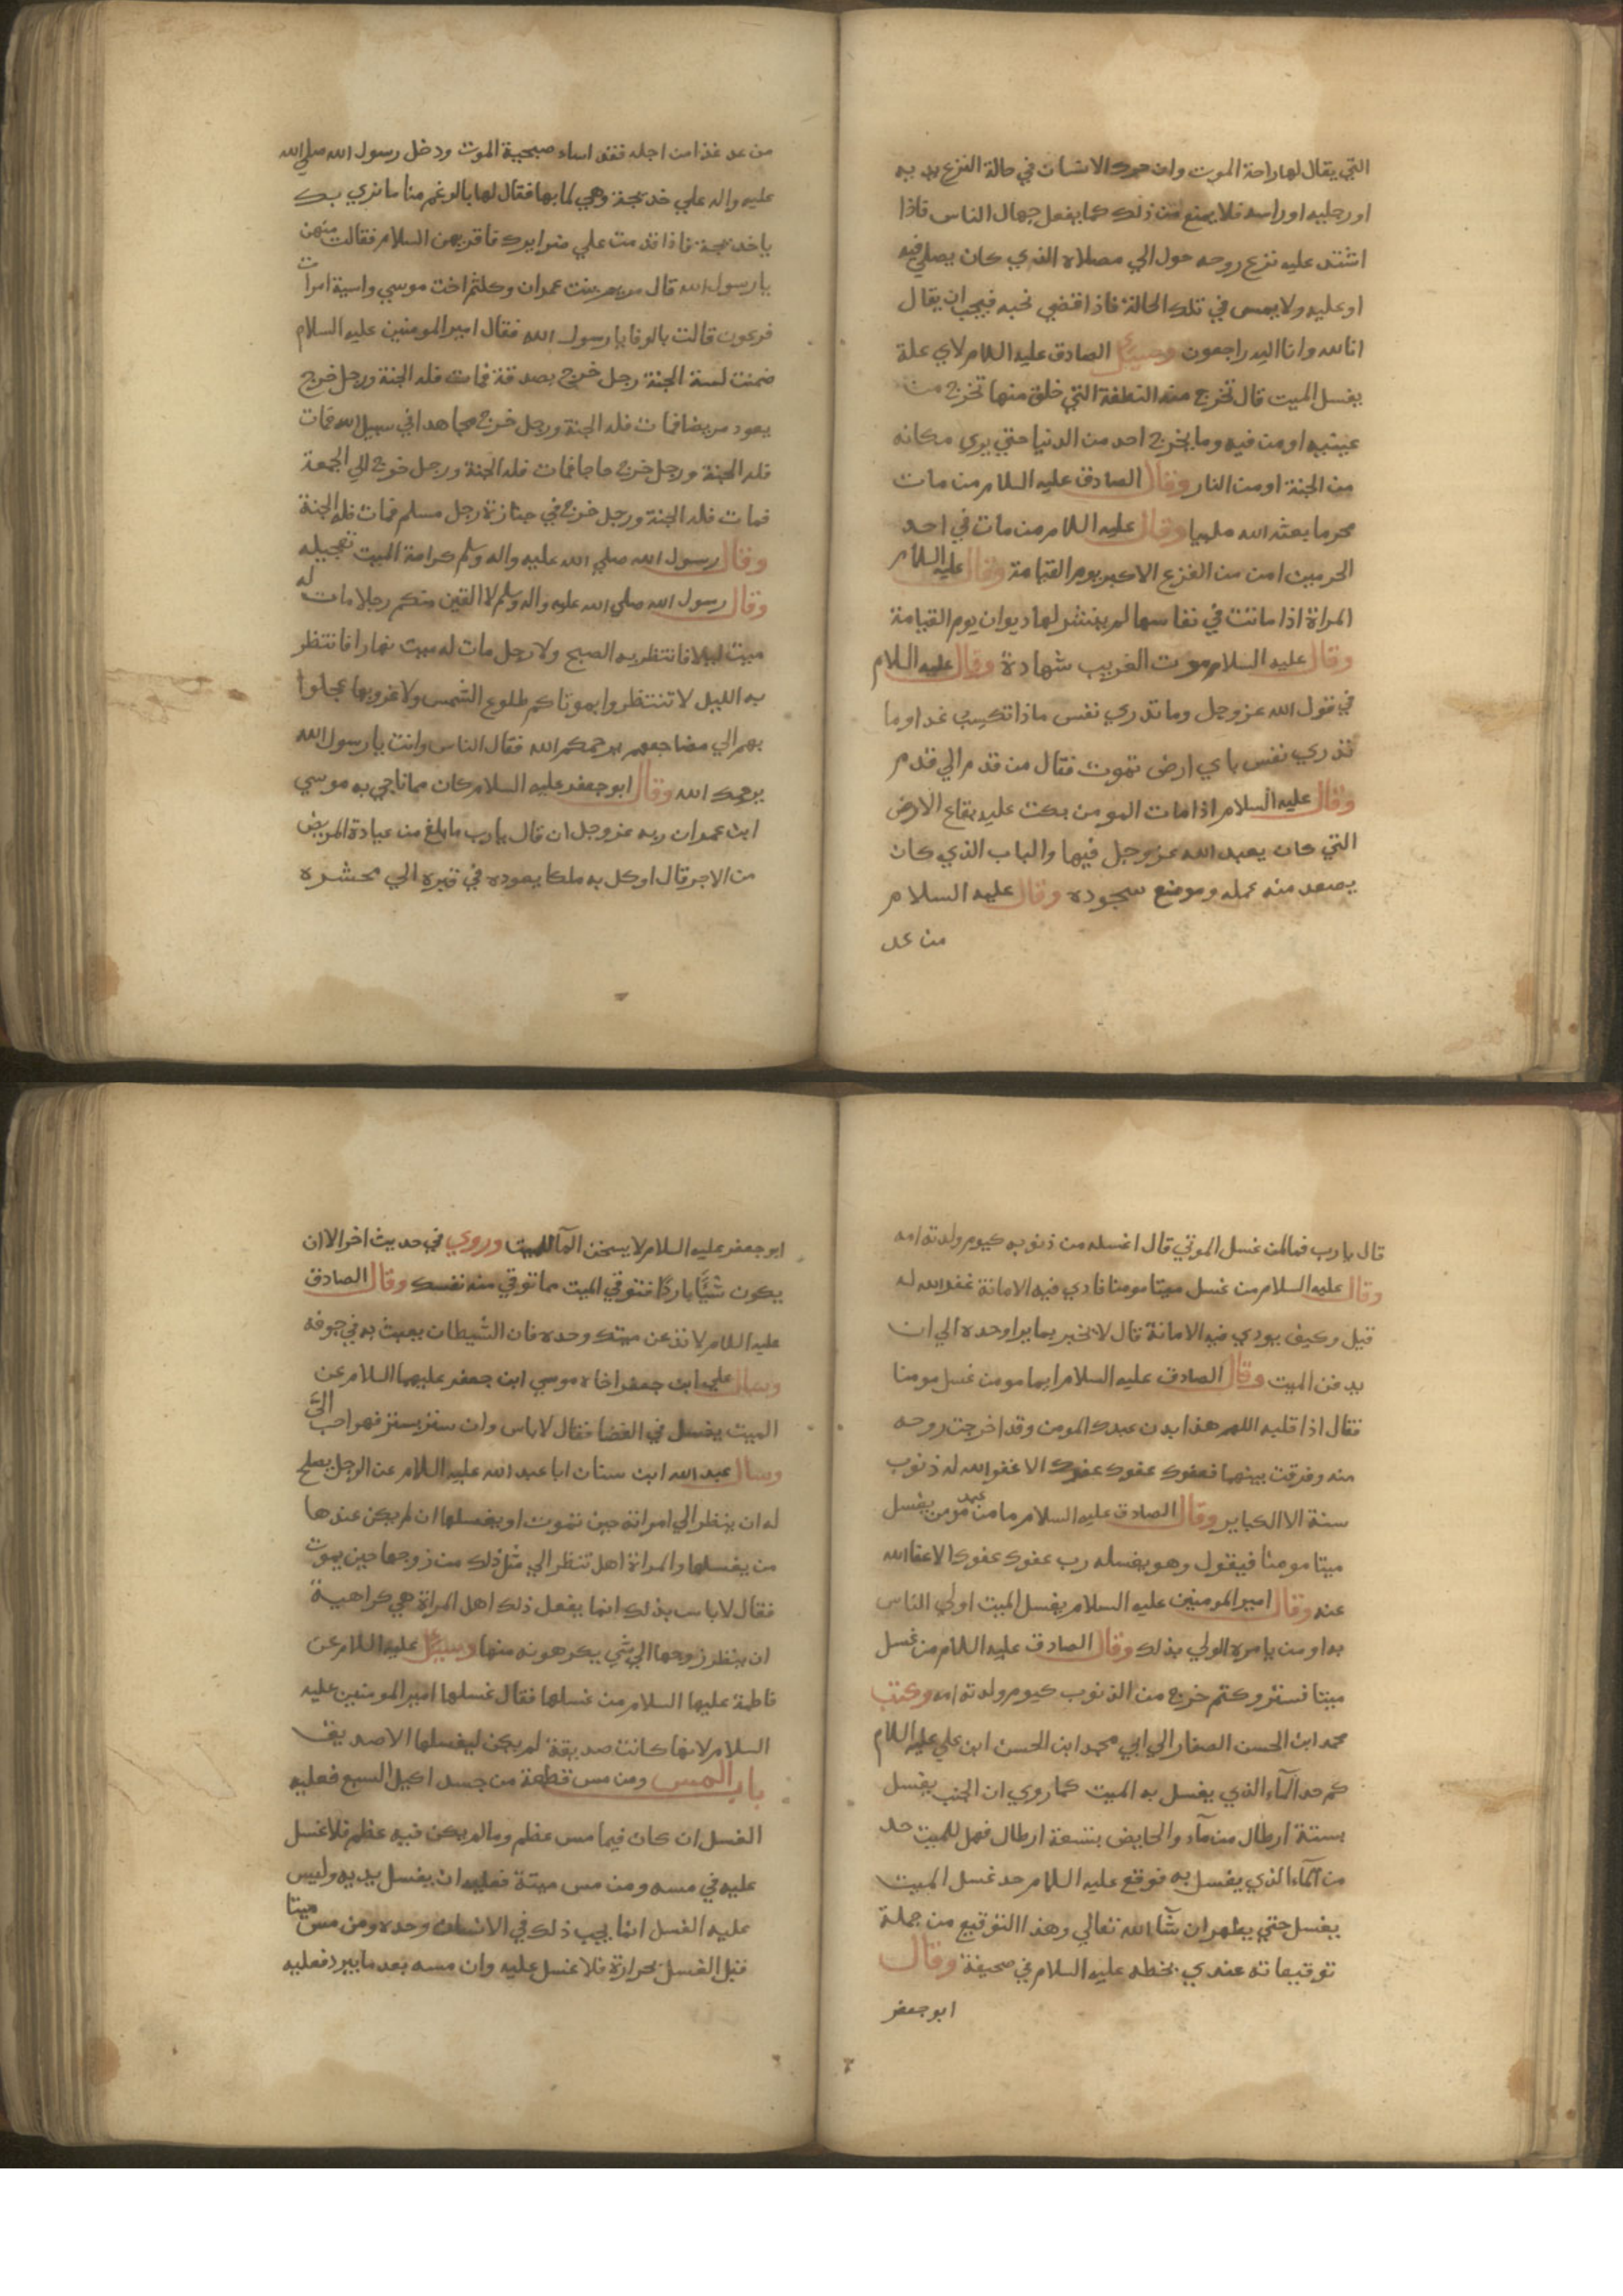 التي يقال لها راحة الموت وان حرك الانسان في حالة النزع يديه
او رجليه او راسه فلا يمنع من ذلك كما يفعل جهال الناس فاذا
اشتد عليه نزع روحه حول الي مصلاه الذي كان يصلي فيه
او عليه ولا يمس في تلك الحالة فاذا قضي نحبه فيجب ان يقال
انا لله وانا اليه راجعون وسيل الصادق عليه السلام لاي علة
يغسل الميت قال تخرج منه النطفة التي خلق منها تخرج من
عينيه او من فيه وما يخرج احد من الدنيا حتي يري مكانه
من الجنة او من النار وقال الصادق عليه السلام من مات
محرما بعثه الله ملبيا وقال عليه السلام من مات في احد
الحرمين امن من الفزع الاكبر يوم القيامة وقال عليه السلام
المراة اذا ماتت في نفاسها لم ينشر لها ديوان يوم القيامة
وقال عليه السلام موت الغريب شهادة وقال عليه السلام
في قول الله عز وجل وما تدري نفس ماذا تكسب غدا وما
تدري نفس باي ارض تموت فقال من قدم الي قدم
وقال عليه السلام اذا مات المومن بكت عليه بقاع الارض
التي كان يعبد الله عز وجل فيها والباب الذي كان
يصعد منه عمله وموضع سجوده وقال عليه السلام
من عد
من عد غدا من اجله فقد اساء صحبة الموت ودخل رسول الله صلي الله
عليه واله علي خديجة وهي لما بها فقال لها بالرغم منا ما نري بك
يا خديجة فاذا قدمت علي ضرايرك فاقريهن السلام فقالت من هن
يا رسول الله قال مريم بنت عمران وكلثم اخت موسي واسية امرات
فرعون قالت بالرفا يا رسول الله فقال امير المومنين عليه السلام
ضمنت لستة الجنة رجل خرج بصدقة فمات فله الجنة ورجل خرج
يعود مريضا فمات فله الجنة ورجل خرج مجاهدا في سبيل الله فمات
فله الجنة ورجل خرج حاجا فمات فله الجنة ورجل خرج الي الجمعة
فمات فله الجنة ورجل خرج في جنازة رجل مسلم فمات فله الجنة
وقال رسول الله صلي الله عليه واله وسلم كرامة الميت تعجيله
وقال رسول الله صلي الله عليه واله وسلم لا القين منكم رجلا مات له
ميت ليلا فانتظر به الصبح ولا رجل مات له ميت نهارا فانتظر
به الليل لا تنتظروا بموتاكم طلوع الشمس ولا غروبها عجلوا
بهم الي مضاجعهم يرحمكم الله فقال الناس وانت يا رسول الله
يرحمك الله وقال ابو جعفر عليه السلام كان مما ناجي به موسي
ابن عمران ربه عز وجل ان قال يا رب ما بلغ من عيادة المريض
من الاجر قال اوكل به ملكا يعوده في قبره الي محشره
قال يا رب فما لمن غسل الموتي قال اغسله من ذنوبه كيوم ولدته امه
وقال عليه السلام من غسل ميتا مومنا فادي فيه الامانة غفر الله له
قيل وكيف يودي فيه الامانة قال لا يخبر بما يرا وحده الي ان
يدفن الميت وقال الصادق عليه السلام ايما مومن غسل مومنا
فقال اذا قلبه اللهم هذا بدن عبدك المومن وقد اخرجت روحه
منه وفرقت بينهما فعفوك عفوك عفوك الا غفر الله له ذنوب
سنة الا الكباير وقال الصادق عليه السلام ما من عبد مومن يغسل
ميتا مومنا فيقول وهو يغسله رب عفوك عفوك الا عفا الله
عنه وقال امير المومنين عليه السلام يغسل الميت اولي الناس
به او من يامره الولي بذلك وقال الصادق عليه السلام من غسل
ميتا فستر وكتم خرج من الذنوب كيوم ولدته امه وكتب
محمد ابن الحسن الصفار الي ابي محمد ابن الحسن ابن علي عليه السلام
كم حد المآء الذي يغسل به الميت كما روي ان الجنب يغسل
بستة ارطال من مآء والحايض بتسعة ارطال فهل للميت حد
من المآء الذي يغسل به فوقع عليه السلام حد غسل الميت
يغسل حتي يطهر ان شآ الله تعالي وهذا التوقيع من جملة
توقيعاته عندي بخطه عليه السلام في صحيفة وقال
ابو جعفر
ابو جعفر عليه السلام لا يسخن المآ للميت وروي في حديث اخر الا ان
يكون شتيًا باردًا فتوقي الميت مما توقي منه نفسك وقال الصادق
عليه السلام لا تدعن ميتك وحده فان الشيطان يعبث به في جوفه
وسال علي ابن جعفر اخاه موسي ابن جعفر عليهما السلام عن
الميت يغسل في الفضا فقال لا باس وان ستر بستر فهو احب اليَّ
وسال عبد الله ابن سنان ابا عبد الله عليه السلام عن الرجل يصلح
له ان ينظر الي امراته حين تموت او يغسلها ان لم يكن عندها
من يغسلها والمراة اهل تنظر الي مثل ذلك من زوجها حين يموت
فقال لا باس بذلك انما يفعل ذلك اهل المراة هي كراهية
ان ينظر زوجها الي شي يكرهونه منها وسيل عليه السلام عن
فاطمة عليها السلام من غسلها فقال غسلها امير المومنين عليه
السلام لانها كانت صديقة لم يكن ليغسلها الا صديق
باب المس ومن مس قطعة من جسد اكيل السبع فعليه
الغسل ان كان فيما مس عظم وما لم يكن فيه عظم فلا غسل
عليه في مسه ومن مس ميتة فعليه ان يغسل يديه وليس
عليه الغسل انما يجب ذلك في الانسان وحده ومن مس ميتا
قبل الغسل بحرارة فلا غسل عليه وان مسه بعد ما يبرد فعليه